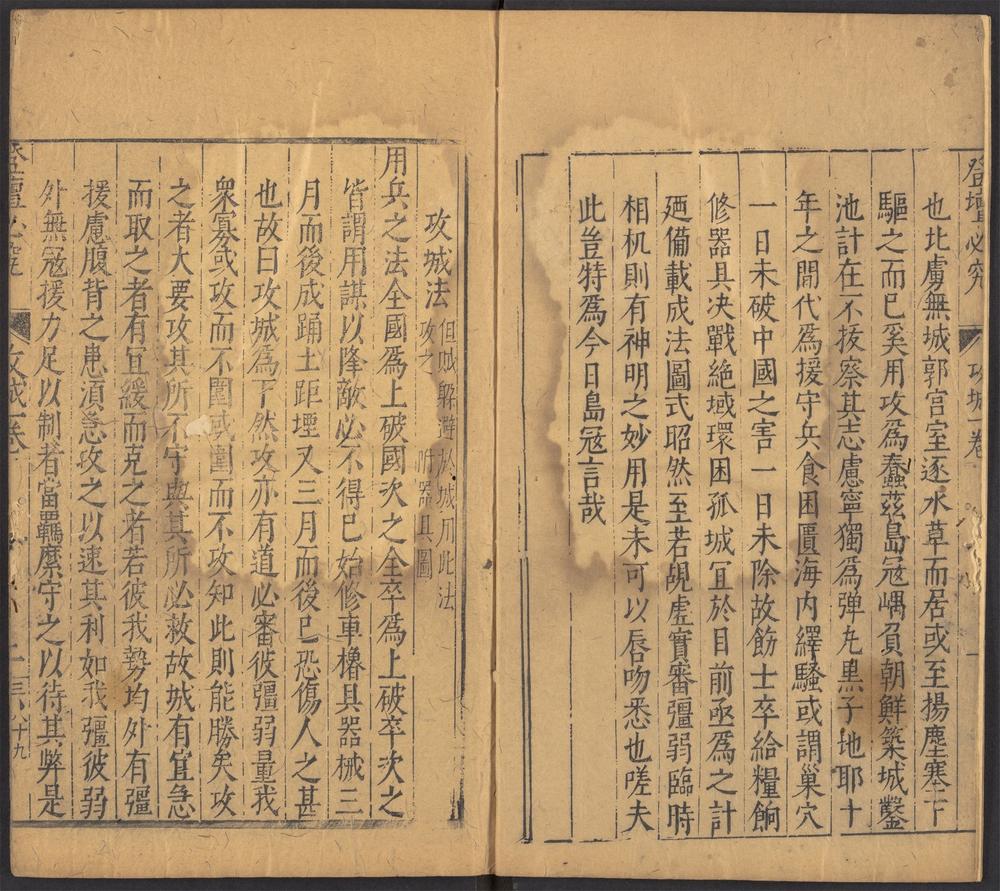 登壇必究
攻城一卷
也北虜無城郭宮室逐水草而居或至揚塵塞下
驅之而已奚用攻爲蠢茲島冦嵎負朝鮮築城鑿
池計在不拔察其志慮寧獨爲弹丸黒子地耶十
年之間代爲援守兵食困匱海内繹騷或謂巢穴
一日未破中國之害一日未除故飭士卒給糧餉
修器具决戰絶域環困孤城冝於目前亟爲之計
廼備載成法圖式昭然至若覘虚實審彊弱臨時
相机則有神明之妙用是未可以唇吻悉也嗟夫
此豈特爲今日島冦言哉
攻城法
但賊躱避於城用此法
攻之 附器具圖
用兵之法全國爲上破國次之全卒爲上破卒次之
皆謂用謀以降敵必不得已始修車櫓具器械三
月而後成踊土距堙又三月而後已恐傷人之甚
也故曰攻城爲下然攻亦有道必審彼彊弱量我
衆寡或攻而不圍或圍而不攻知此則能勝矣攻
之者大要攻其所不守與其所必救故城有宜急
而取之者有宜緩而克之者若彼我勢均外有彊
援慮腹背之患須急攻之以速其利如我彊彼弱
外無冦援力足以制者當羈縻守之以待其弊是
登壇必究
攻城一卷